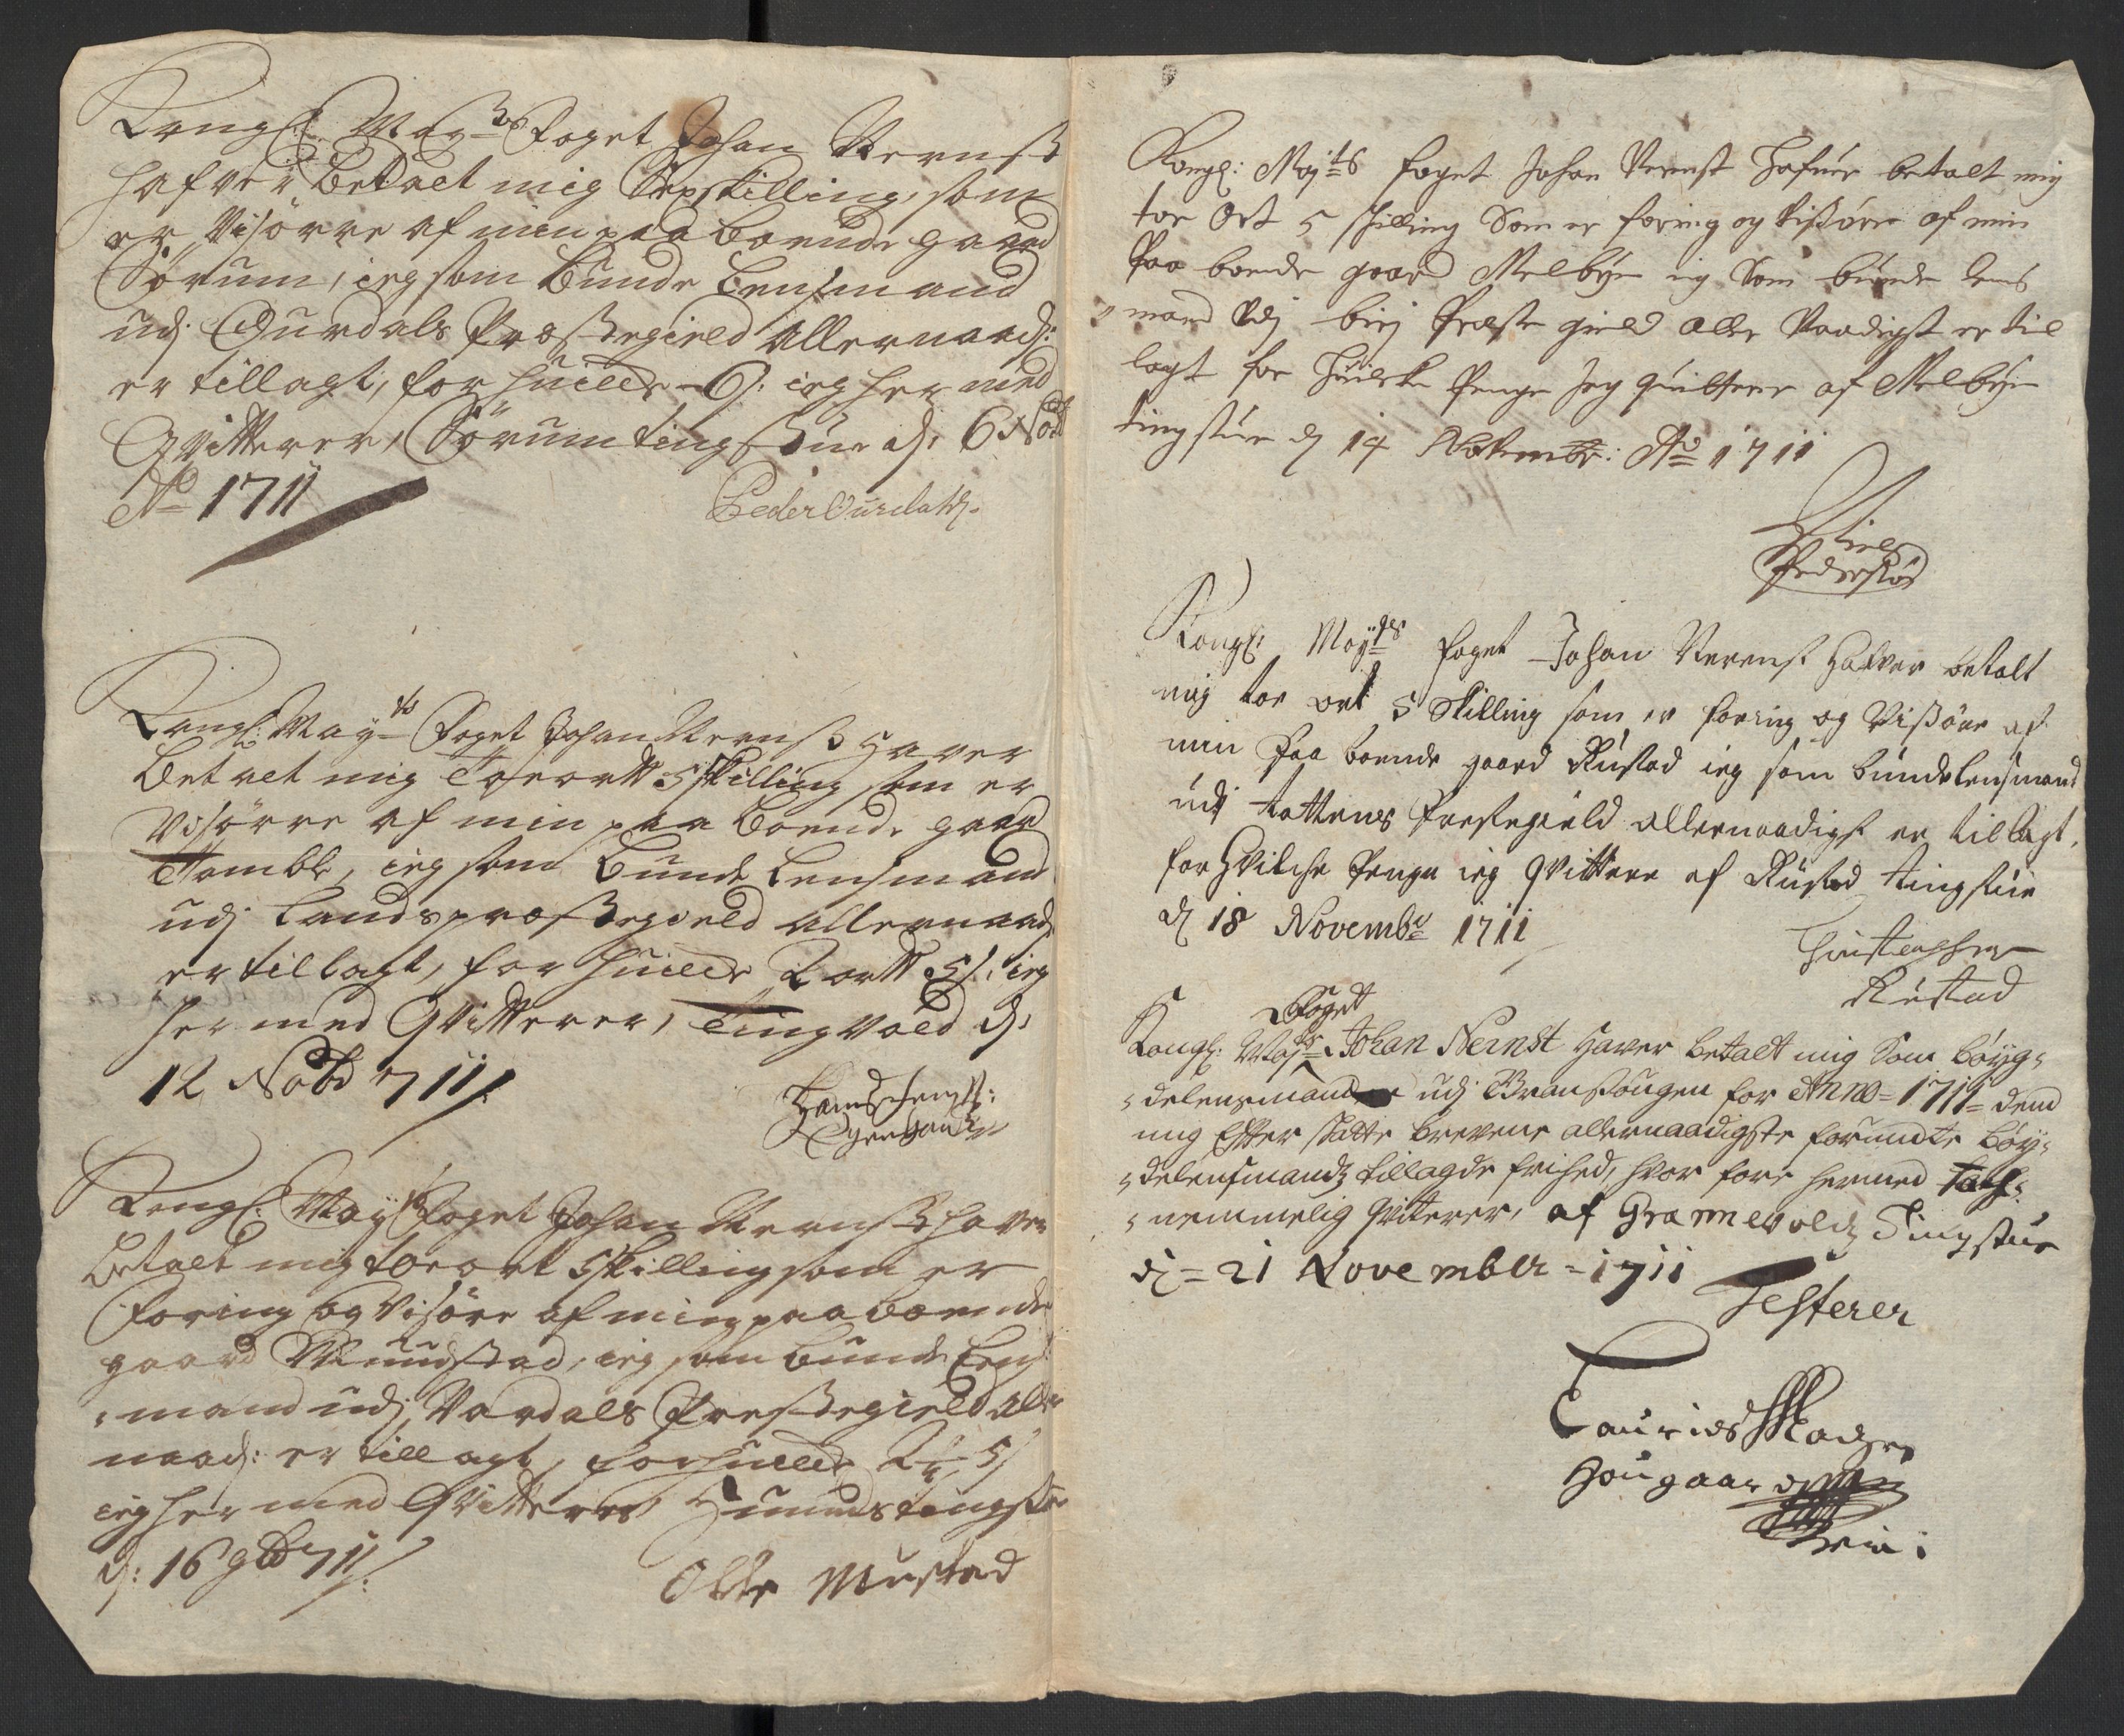 Kongl: May:ts Foget Johan Nernst
hafver betalt mig Sexskilling, som
er Visørre af min paa boende gaard
Sørum, ieg som bunde Lensmand
udj Ourdals Præstegield Allernaad:
er tillagt, for huilche 6 s: ieg her med
Qvitterer, Sørum tingstue d: 6 Nob:
Ao 1711
Peder Ourdahl.
Kongl: May:ts Foget Johan Nernst Haver
betalt mig Toe ortt 5 skilling som er
Visørre af min paa boende gaard
Tomble, ieg som bunde Lensmand
udj Lands præstegield allernaad:
er tillagt, for huilche 2 ortt 5 s: ieg
her med Qvitterer, Tingvold d:
12 Nobr 1711
Hans
Egenhand
Kongl: May:ts Foget Johan Nernst haver
betalt mig toe ort 5 skilling som er
Foring og Visøre af min paa boende
gaard Muustad, ieg som bunde Lens
mand udj Vardals Præstegield aller
naad: er tillagt, for huilche 2 5 s
ieg her med Qvitterer Hunnds tingstue
d: 16 9br 1711
Olle Mustad
Kongl: May:ts foget Johan Nernst Hafuer betalt mig
toe Ort 5 skilling Som er foring og Vissøre af min
Paa boende gaard Melbye ieg Som bunde lens
mand Udj birj Præste gield Aller Naadigst er til
lagt for Huilche Penge Jeg quitterer af Melbye
tingstue d 14 November: Ao 1711
Niels
Pedersøn
Kongl: May:tes foget Johan Nernst Hafver betalt
mig toe ort 5 skilling som er foring og Vissøre af
min Paa boende gaard Rustad ieg som bunde lensmand
udj tottens Prestegield allernaadigst er tillagt,
for Hvilche Penge ieg qvittere af Rustad tingstue
d 18 Novembr 1711
Christopher
Rustad
Foget
Kongl: May:ts Johan Nernst Haver betalt mig Som bøyg¬
delensmand udj Bransougen for Anno = 1711 = dend
mig Efter skatte brevene allernaadigste forundte bøy¬
delensmandz tillagde frihed, hvor fore hermed tach¬
nemmelig qviterer, af Grannevolds Tingstue
d = 21 November = 1711
Testerer
Laurids Madsen
Hougaar